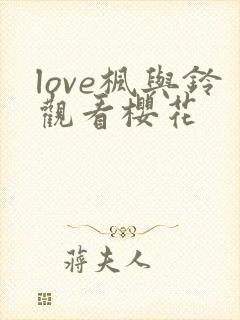 love楓與鈴
觀看櫻花
蔣夫人